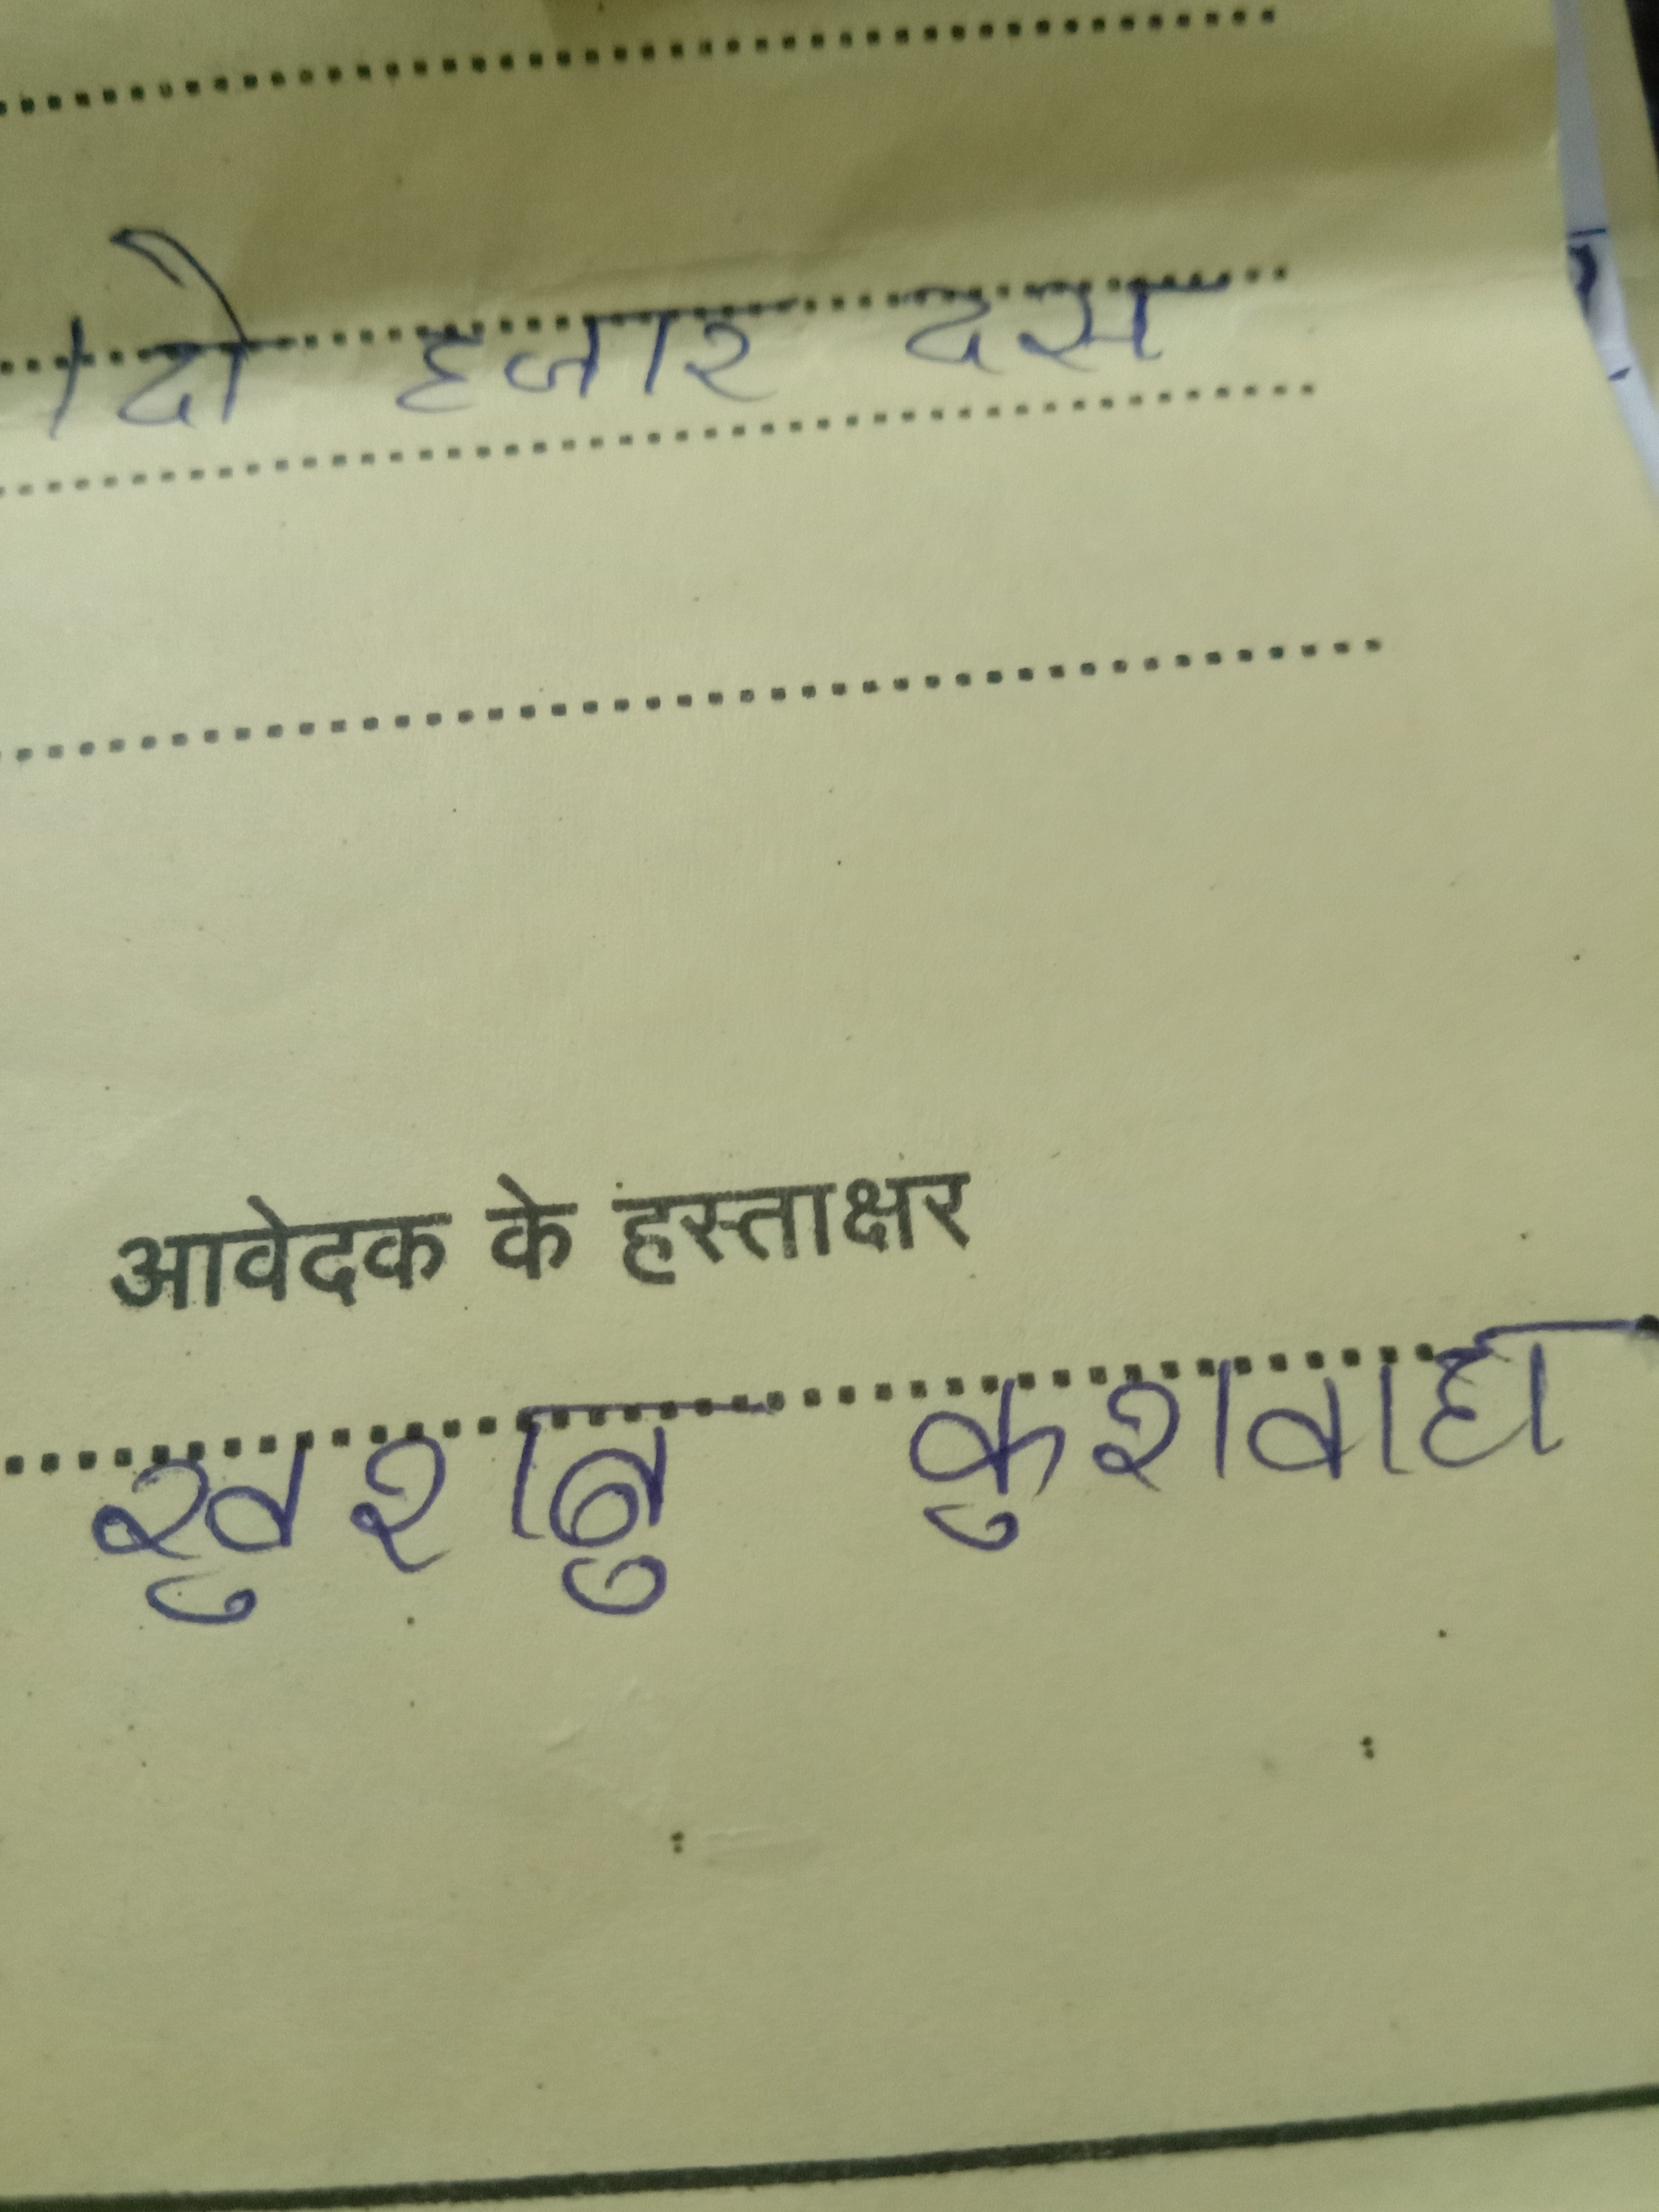 दो हजार दस
आवेदक के हस्ताक्षर
खुशबु कुशवाहा